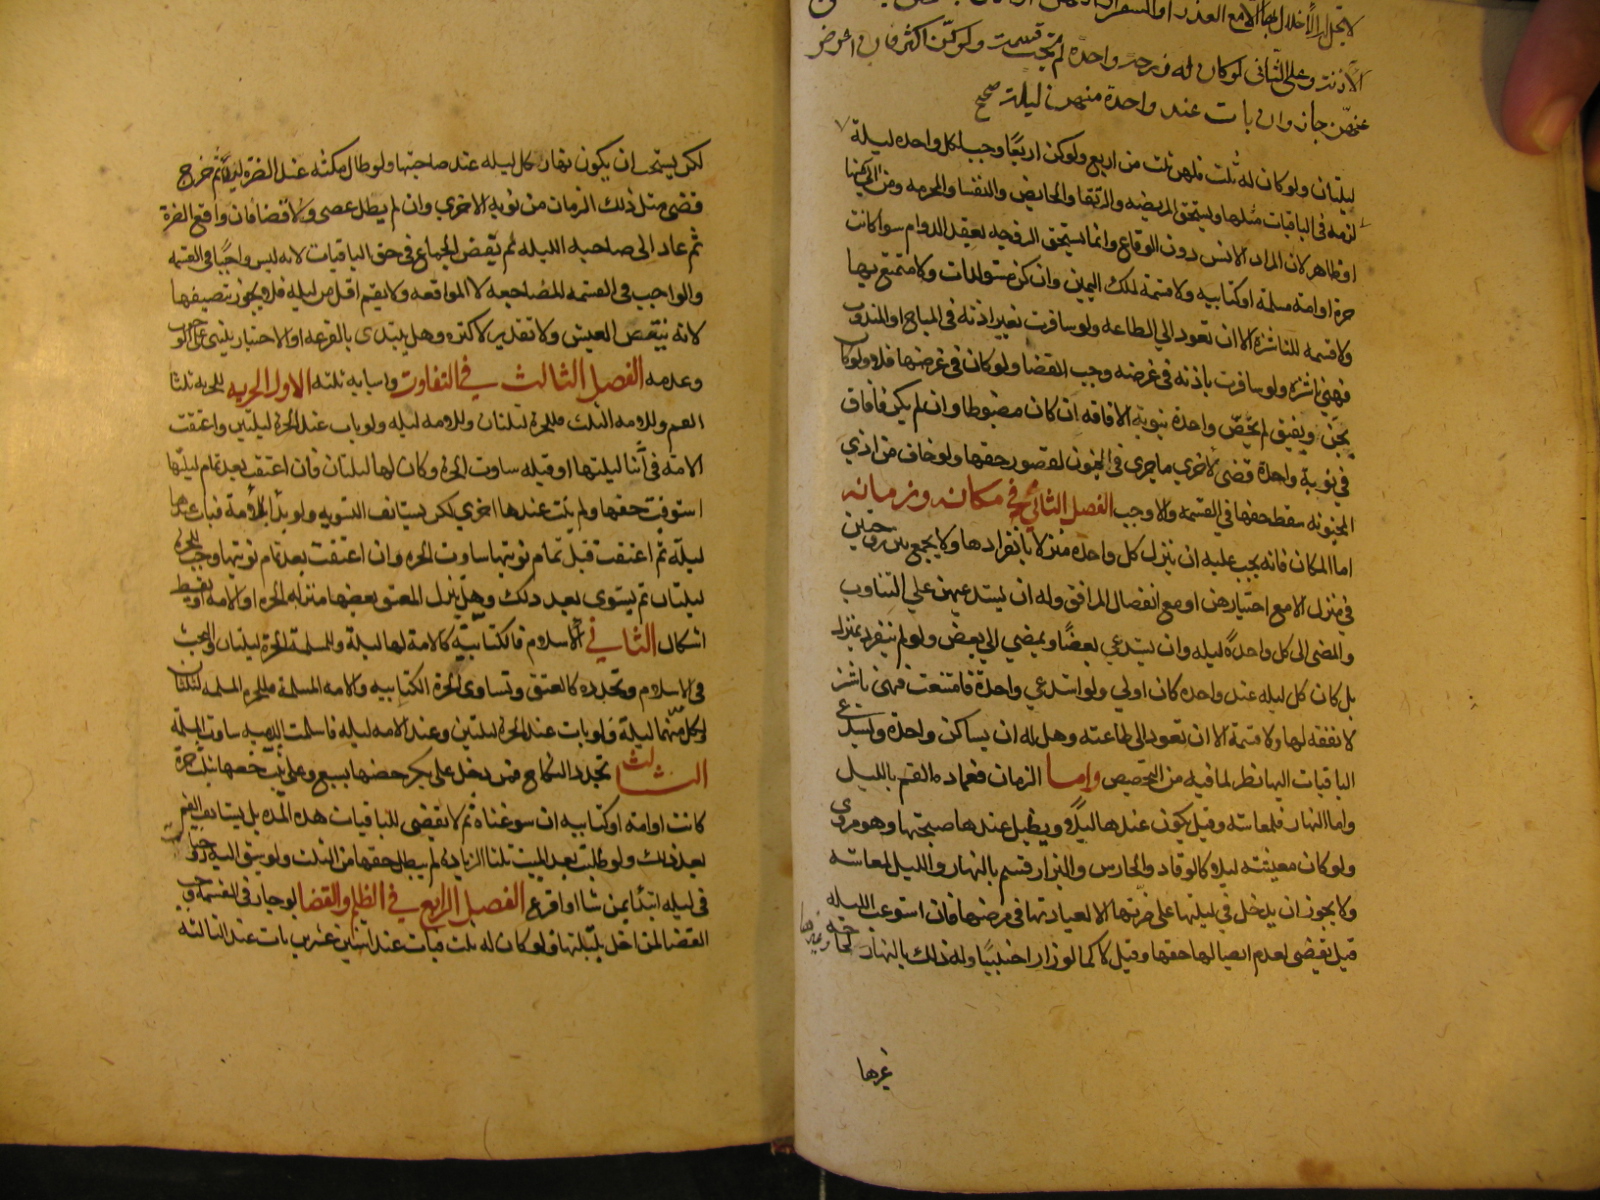 لا يحل الاخلال بها الا مع العذر او السفر او
الاذن وعلى الثاني لو كان له زوجة واحدة لم تجب قسمة ولو كن اكثر فان اعرض
عنهن جاز وان بات عند واحدة منهن ليلة صح
ليلتان ولو كان له ثلث فلهن ثلث من اربع ولو كن اربعا وجب لكل واحده ليلة
لزمه في الباقيات مثلها ويستحق المريضه والرتقا والحايض والنفسا والمحرمه ومن الى منها
او ظاهر لان المراد الانس دون الوقاع وانما يستحق الزوجه بعقد الدوام سوا كانت
حرة او امة مسلمة او كتابيه ولا قسمة لملك اليمين وان كن مستولدات ولا متمتع بها
ولا قسمه للناشزة الا ان تعود الي الطاعه ولو سافرت بغير اذنه في المباح او المندوب
فهي ناشزه ولو سافرت باذنه في غرضه وجب القضا ولو كان في غرضها فلا ولو كان
يجن ويفيق لم يخص واحدة بنوبة الافاقه ان كان مضبوطا وان لم يكن فافاق
في نوبة واحدة قضى لاخري ما جري في الجنون لقصور حقها ولو خاف من اذي
المجنونه سقط حقها في القسمة والا وجب الفصل الثاني في مكانه وزمانه
اما المكان فانه يجب عليه ان ينزل كل واحده منزلا بانفرادها ولا يجمع بين زوجتين
في منزل الا مع اختيارهن او مع انفصال المرافق وله ان يستدعيهن علي التناوب
والمضى الى كل واحدة ليله وان يستدعي بعضا ويمضي الي بعض ولو لم ينفرد بمنزل
بل كان كل ليله عند واحده كان اولي ولو استدعي واحدة فامتنعت فهي ناشز
لا نفقه لها ولا قسمة الا ان تعود الى طاعته وهل له ان يساكن واحدة ويستدعي
الباقيات اليها نظر لما فيه من التخصيص واما الزمان فعماده القسم بالليل
واما النهار فلمعاشه وقيل يكون عندها ليلا ويظل عندها صبيحتها وهو مروي
ولو كان معيشته ليلا كالوقاد والحارس والبزار قسم بالنهار والليل لمعاشه
ولا يجوز ان يدخل في ليلتها على ضرتها الا لعيادتها في مرضها فان استوعب الليله
قيل يقضى لعدم ايصالها حقها وقيل لا كما لو زار اجنبيا وله ذلك بالنهار لحاجة
غرها
لكن يستحب ان يكون نهار كل ليله عند صاحبتها ولو طال مكثه عند الضرة ليلا ثم خرج
قضى مثل ذلك الزمان من نوبه الاخري وان لم يطل عصى ولا قضا فان واقع الضرة
ثم عاد الى صاحبة الليله لم يقض الجماع في حق الباقيات لانه ليس واجبا في القسمه
والواجب في القسمه المضاجعه لا المواقعه ولا يقسم اقل من ليله فلا يجوز تنصيفها
لانه ينغص العيش ولا تقدير لاكثره وهل يبتدى بالقرعه او الاختيار يبنى على الوجوب
وعدمه الفصل الثالث في التفاوت واسبابه ثلثه الاول الحريه للحره ثلثا
القسم وللامه الثلث فللحرة ليلتان وللامه ليله ولو بات عند الحرة ليلتين واعتقت
الامة في اثنا ليلتها او قبله ساوت الحرة وكان لها ليلتان فان اعتقت بعد تمام ليلتها
استوفت حقها ولم يبت عندها اخري لكن يستانف التسويه ولو بدأ بالامة فبات عندها
ليلة ثم اعتقت قبل تمام نوبتها ساوت الحره وان اعتقت بعد تمام نوبتها وجب للحرة
ليلتان ثم يستوى بعد ذلك وهل ينزل المعتق بعضها منزلة الحرة او الامة او يقسط
اشكال الثاني الاسلام فالكتابيّة كالامة لها ليلة وللمسلمة الحرة ليلتان والبحث
في الاسلام وتجدده كالعتق وتساوى الحرة الكتابيه والامه المسلمة فللحرة المسلمه ليلتان
ولكل منهما ليلة فلو بات عند الحرة ليلتين وعند الامه ليله فاسلمت الذميه ساوت المسلمة
الثالث تجدد النكاح فمن دخل على بكر خصها بسبع وعلى ثيب خصها بثلث حرة
كانت او امه او كتابيه ان سوغناه ثم لا يقضى للباقيات هذه المده بل يستانف القسم
بعد ذلك ولو طلبت بعد المبيت ثلثا الزياده لم يبطل حقها من الثلث ولو سيق اليه زوجتان
في ليله ابتدأ بمن شا او اقرع الفصل الرابع في الظلم والقضا لو جار في القسمة وجب
القضا لمن اخل بليلتها فلو كان له ثلث فبات عند اثنتين عشرين بات عند الثالثة